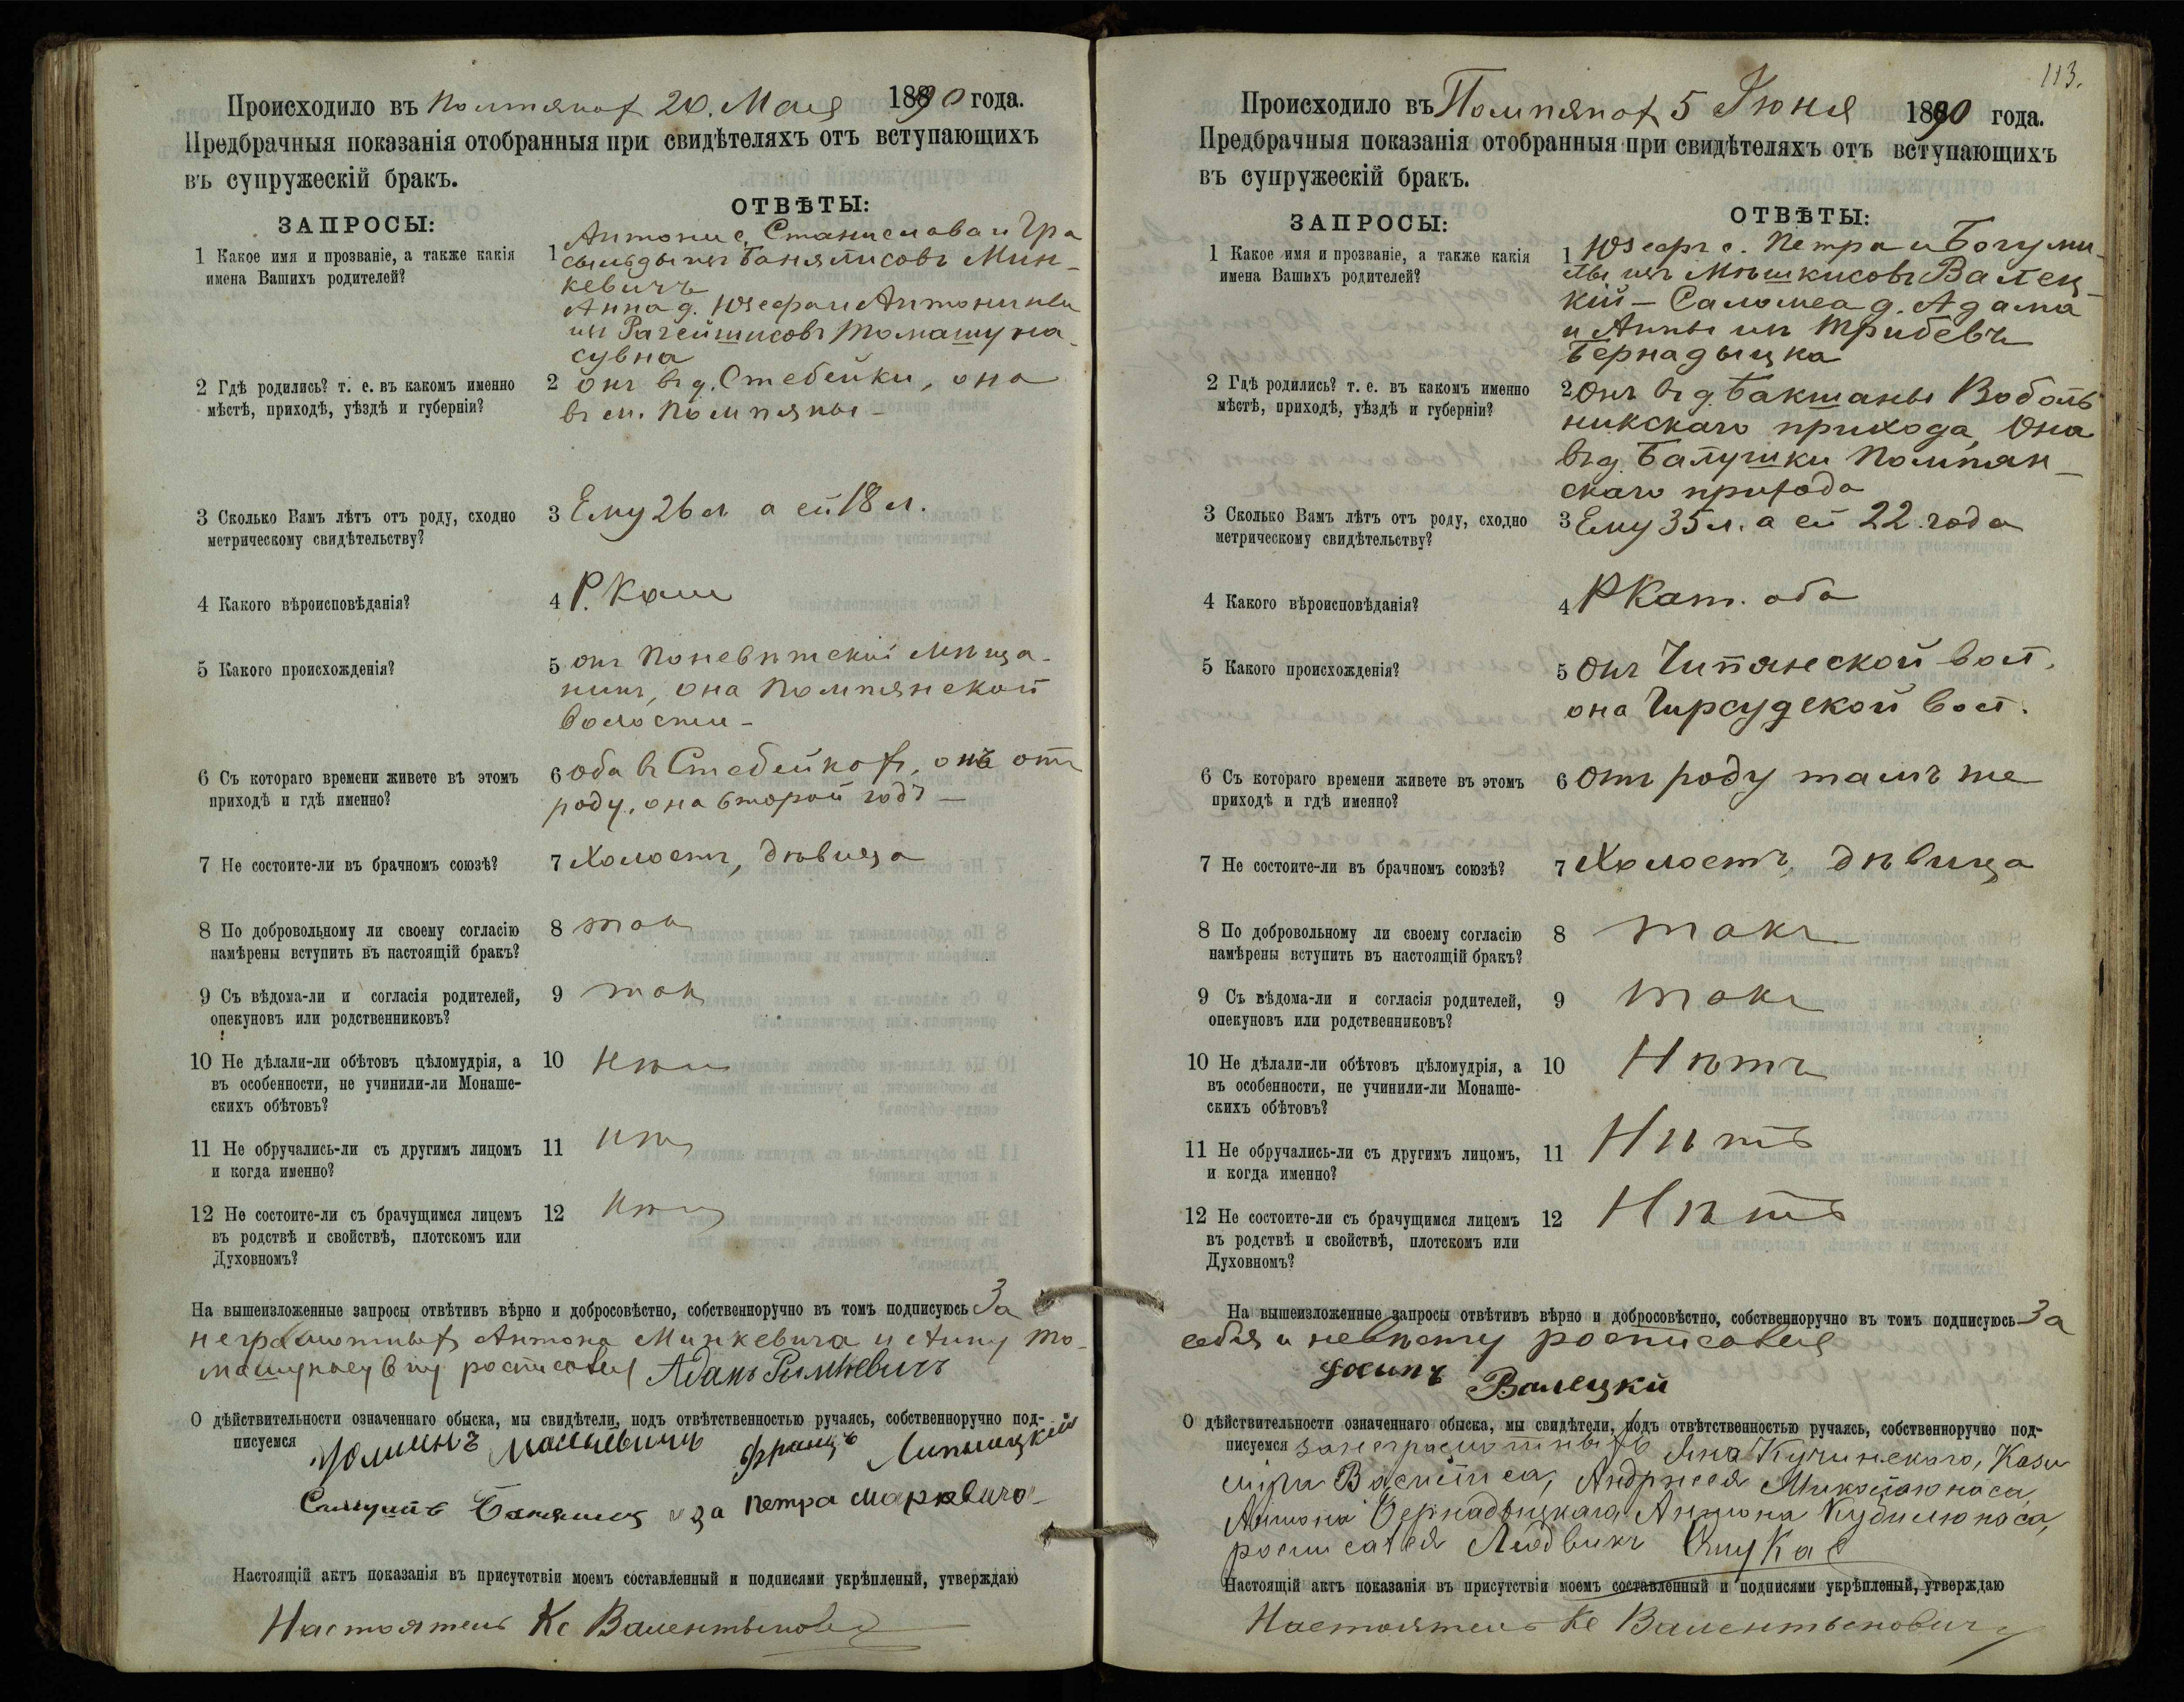 Происходило въ Помпянах 20. Мая 1890 года.
Предбрачныя показанія отобранныя при свидѣтеляхъ отъ вступающихъ
въ супружескій бракъ.
ЗАПРОСЫ:
ОТВѢТЫ:
1 Какое имя и прозваніе, а также какія
имена Вашихъ родителей?
1 Антоніе, Станислава и Гра
сыльды изъ Банялисовъ Мин-
кевичъ
Анна д. Юзефа и Антонины
изъ Рагейшисовъ Томашуна-
сувна
2 Гдѣ родились? т. е. въ какомъ именно
мѣстѣ, приходѣ, уѣздѣ и губерніи?
2 онъ въ д. Стебейки, она
въ м. Помпяны -
3 Сколько Вамъ лѣтъ отъ роду, сходно
метрическому свидѣтельству?
3 Ему 26 л а ей 18 л.
4 Какого вѣроисповѣданія?
4 Р. Кат
5 Какого происхожденія?
5 онъ Поневѣжскій мѣща-
нинъ, она Помпянской
волости -
6 Съ котораго времени живете въ этомъ
приходѣ и гдѣ именно?
6 оба въ Стебейках, онъ отъ
роду, она второй годъ —
7 Не состоите-ли въ брачномъ союзѣ?
7 Холостъ, дѣвица
8 По добровольному ли своему согласію
намѣрены вступить въ настоящій бракъ?
8 такъ
9 Съ вѣдома-ли и согласія родителей,
опекуновъ или родственниковъ?
9 такъ
10 Не дѣлали-ли обѣтовъ цѣломудрія, а
въ особенности, не учинили-ли Монаше-
скихъ обѣтовъ?
10 Нѣтъ
11 Не обручались-ли съ другимъ лицомъ
и когда именно?
11 Нѣтъ
12 Не состоите-ли съ брачущимся лицемъ
въ родствѣ и свойствѣ, плотскомъ или
Духовномъ?
12 Нѣтъ
На вышеизложенные запросы отвѣтивъ вѣрно и добросовѣстно, собственноручно въ томъ подписуюсь За
неграмотныхъ Антона Минкевича и Анну То-
машунасувну росписался Адамъ
О дѣйствительности означеннаго обыска, мы свидѣтели, подъ отвѣтственностью ручаясь, собственноручно под-
писуемся Францъ
и за Петра Маркевича
Настоящій актъ показанія въ присутствіи моемъ составленный и подписями укрѣпленый, утверждаю
Настоятель Кс Валентынович
113.
Происходило въ Помпянах 5 Іюня 1890 года.
Предбрачныя показанія отобранныя при свидѣтеляхъ отъ вступающихъ
въ супружескій бракъ.
ЗАПРОСЫ:
ОТВѢТЫ:
1 Какое имя и прозваніе, а также какія
имена Вашихъ родителей?
1 Юзефъ с. Петра и Богуми-
лы изъ Мѣшкисовъ Валец-
кій — Саломеа д. Адама
и Анны изъ Трибевъ
Бернадыцка
2 Гдѣ родились? т. е. въ какомъ именно
мѣстѣ, приходѣ, уѣздѣ и губерніи?
2 Онъ въ д. Бакшаны Воболь
никскаго прихода, Она
въ д. Балушки Помпян-
скаго прихода
3 Сколько Вамъ лѣтъ отъ роду, сходно
метрическому свидѣтельству?
3 Ему 35 л. а ей 22. года
4 Какого вѣроисповѣданія?
4 РКат. оба
5 Какого происхожденія?
5 Онъ Чипянской вол.
она Гирсудской вол.
6 Съ котораго времени живете въ этомъ
приходѣ и гдѣ именно?
6 Отъ роду тамъ же
7 Не состоите-ли въ брачномъ союзѣ?
7 Холостъ, дѣвица
8 По добровольному ли своему согласію
намѣрены вступить въ настоящій бракъ?
8 такъ
9 Съ вѣдома-ли и согласія родителей,
опекуновъ или родственниковъ?
9 такъ
10 Не дѣлали-ли обѣтовъ цѣломудрія, а
въ особенности, не учинили-ли Монаше-
скихъ обѣтовъ?
10 Нѣтъ
11 Не обручались-ли съ другимъ лицомъ,
и когда именно?
11 Нѣтъ
12 Не состоите-ли съ брачущимся лицемъ
въ родствѣ и свойствѣ, плотскомъ или
Духовномъ?
12 Нѣтъ
На вышеизложенные запросы отвѣтивъ вѣрно и добросовѣстно, собственноручно въ томъ подписуюсь За
себя и невѣсту росписался
Іосипъ Валецки
О дѣйствительности означеннаго обыска, мы свидѣтели, подъ отвѣтственностью ручаясь, собственноручно под-
писуемся за неграмотныхъ Яна Кучинскаго, Кази
міра Васиписа, Андржея Миколаюнаса,
Антона Бернадыцкаго, Антона Кубилюнаса,
росписался Людвикъ Янукас
Настоящій актъ показанія въ присутствіи моемъ составленный и подписями укрѣпленый, утверждаю
Настоятель Кс Валентынович